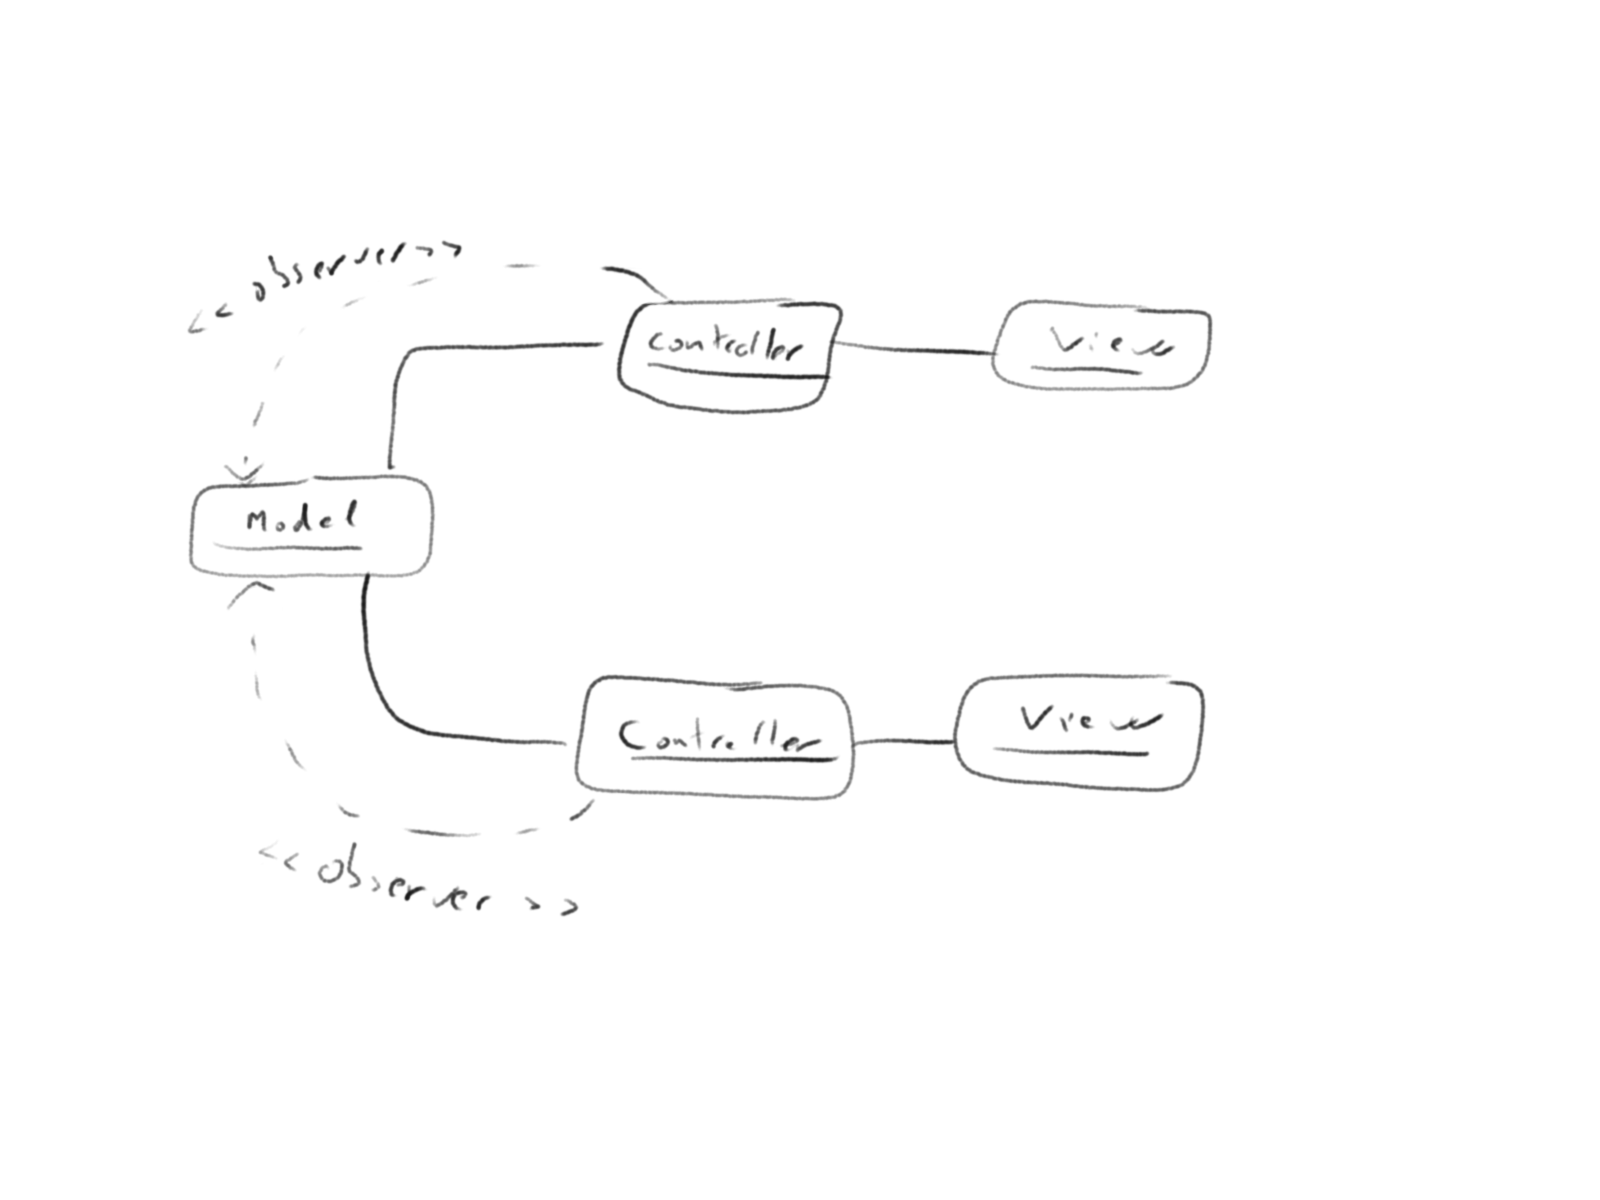 <<observer>>
controller
View
Model
Controller
View
<<observer>>